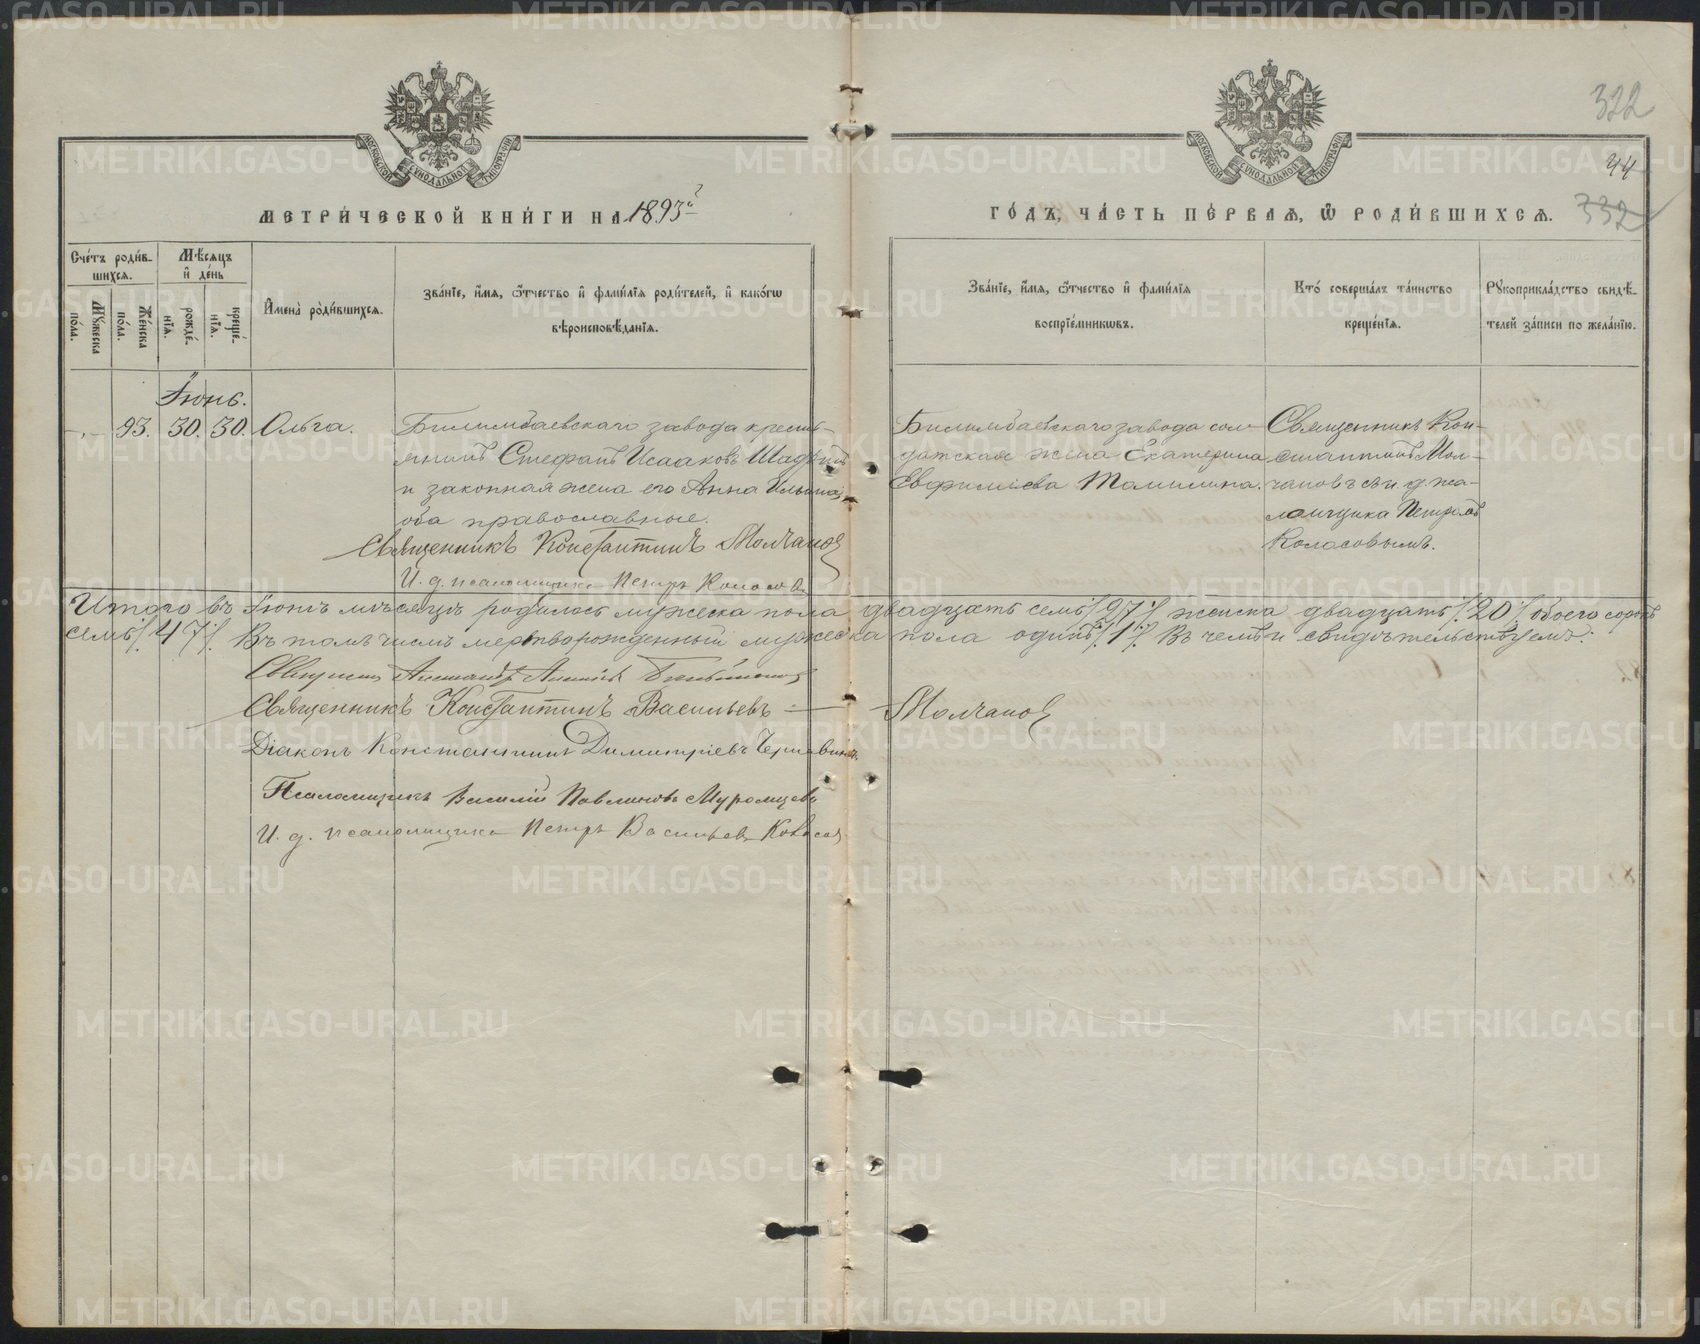 322
44
332
МОСКОВСКОЙ СѴНОДАЛЬНОЙ ТИПОГРАФІИ
МОСКОВСКОЙ СѴНОДАЛЬНОЙ ТИПОГРАФІИ
МЕТРИ́ЧЕСКОЙ КНИ́ГИ НА 1893й
ГО́ДЪ, ЧА́СТЬ ПЕ́РВАѦ, Ѿ РОДИ́ВШИХСѦ.
Сче́тъ роди́в-
шихсѧ.
Мꙋжеска по́ла.
Же́нска по́ла.
Мѣ́сѧцъ
и҆ де́нь
рожде́-
нїѧ.
креще́-
нїѧ.
И҆мена̀ роди́вшихсѧ.
Зва́нїе, и҆́мѧ, ѻ҆́тчество и҆ фами́лїѧ роди́телей, и҆ како́гѡ
вѣроисповѣ́данїѧ.
Зва́нїе, и҆́мѧ, ѻ҆́тчество и҆ фами́лїѧ
воспрїе́мникѡвъ.
Кто̀ соверша́лъ та́инство
креще́нїѧ.
Рꙋкоприкла́дство свидѣ́-
телей за́писи по жела́нїю.
Іюнь.
-,- 93. 30. 30. Ольга.
Билимбаевскаго завода кресть-
янинъ Стефанъ Исааковъ Шадринъ
и законная жена его Анна Ильина,
оба православные.
Священникъ Константинъ Молчановъ
И. д. псаломщика Петръ Колосовъ
Билимбаевскаго завода сол-
датская жена Екатерина
Евфимиева Томилина.
Священникъ Кон-
стантинъ Мол-
чановъ съ и. д. пса-
ломщика Петромъ
Колосовымъ.
Итого въ Іюнѣ мѣсяцѣ родилось мужеска пола двадцать семь /.27/. женска двадцать /.20/. обоего сорокъ
семь /.47/. Въ томъ числѣ мертворожденный мужеска пола одинъ /.1/. Въ чемъ и свидѣтельствуемъ:
Священникъ Константинъ Васильевъ — Молчановъ
Діаконъ Константинъ Димитріевъ
Псаломщикъ Василій Павлиновъ Муромцевъ
И. д. псаломщика Петръ Васильевъ Колосовъ
METRIKI.GASO-URAL.RU